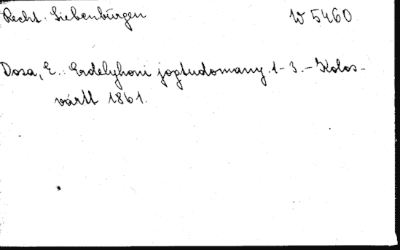 Recht. Siebenbürgen W 5460
Dosa, E.: Erdelyhoni jogtudomany 1-3. - Kolos-
vártt 1861.